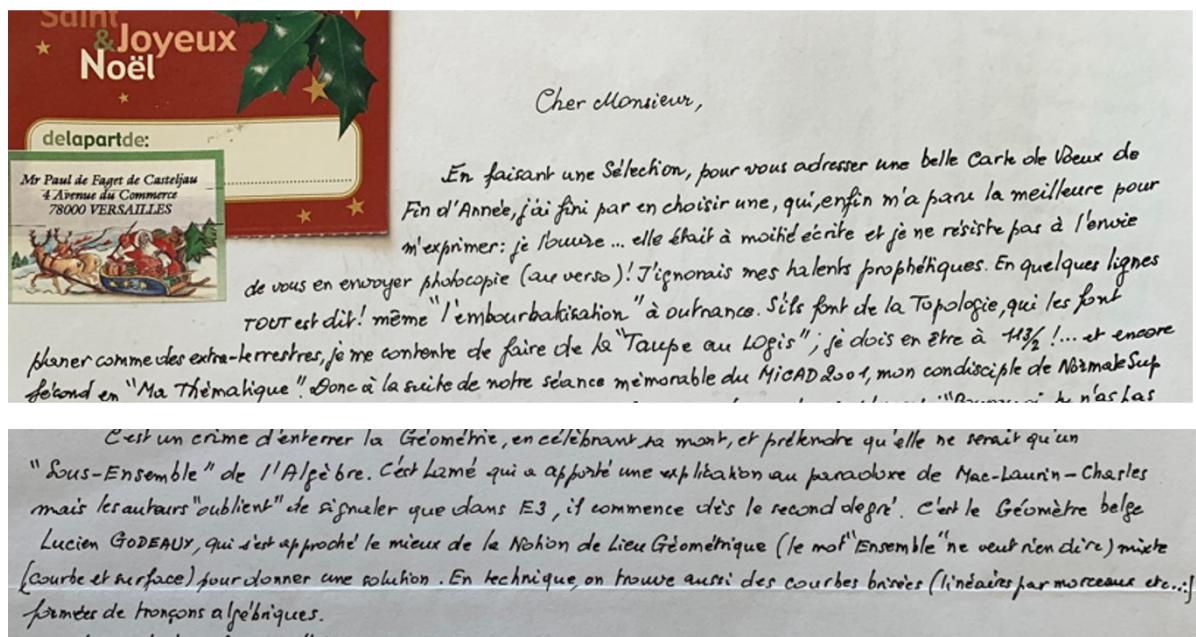 Saint
& Joyeux
Noël
delapartde:
Mr Paul de Faget de Casteljau
4 Avenue du Commerce
78000 VERSAILLES
Cher Monsieur,
En faisant une Sélection, pour vous adresser une belle Carte de Voeux de
Fin d'Année, j'ai fini par en choisir une, qui, enfin m'a paru la meilleure pour
m'exprimer: je l'ouvre ... elle était à moitié écrite et je ne résiste pas à l'envie
de vous en envoyer photocopie (au verso)! J'ignorais mes talents prophétiques. En quelques lignes
TOUT est dit! même "l'embourbakisation" à outrance. S'ils font de la Topologie, qui les font
planer comme des extra-terrestres, je me contente de faire de la "Taupe au Logis"; je dois en être à 113/2 !... et encore
fécond en "Ma Thématique". Donc à la suite de notre séance mémorable du MICAD 2001, mon condisciple de Normale Sup
tu n'as pas
C'est un crime d'enterrer la Géométrie, en célèbrant sa mort, et prétendre qu'elle ne serait qu'un
"Sous-Ensemble" de l'Algèbre. C'est Lamé qui a apporté une explication au paradoxe de Mac-Laurin-Charles
mais les auteurs "oublient" de signaler que dans E3, il commence dès le second degré. C'est le Géomètre belge
Lucien GODEAUX, qui s'est approché le mieux de la Notion de Lieu Géométrique (le mot "Ensemble" ne veut rien dire) mixte
(courbe et surface) pour donner une solution. En technique, on trouve aussi des courbes brisées (linéaires par morceaux etc...)
formées de tronçons algébriques.